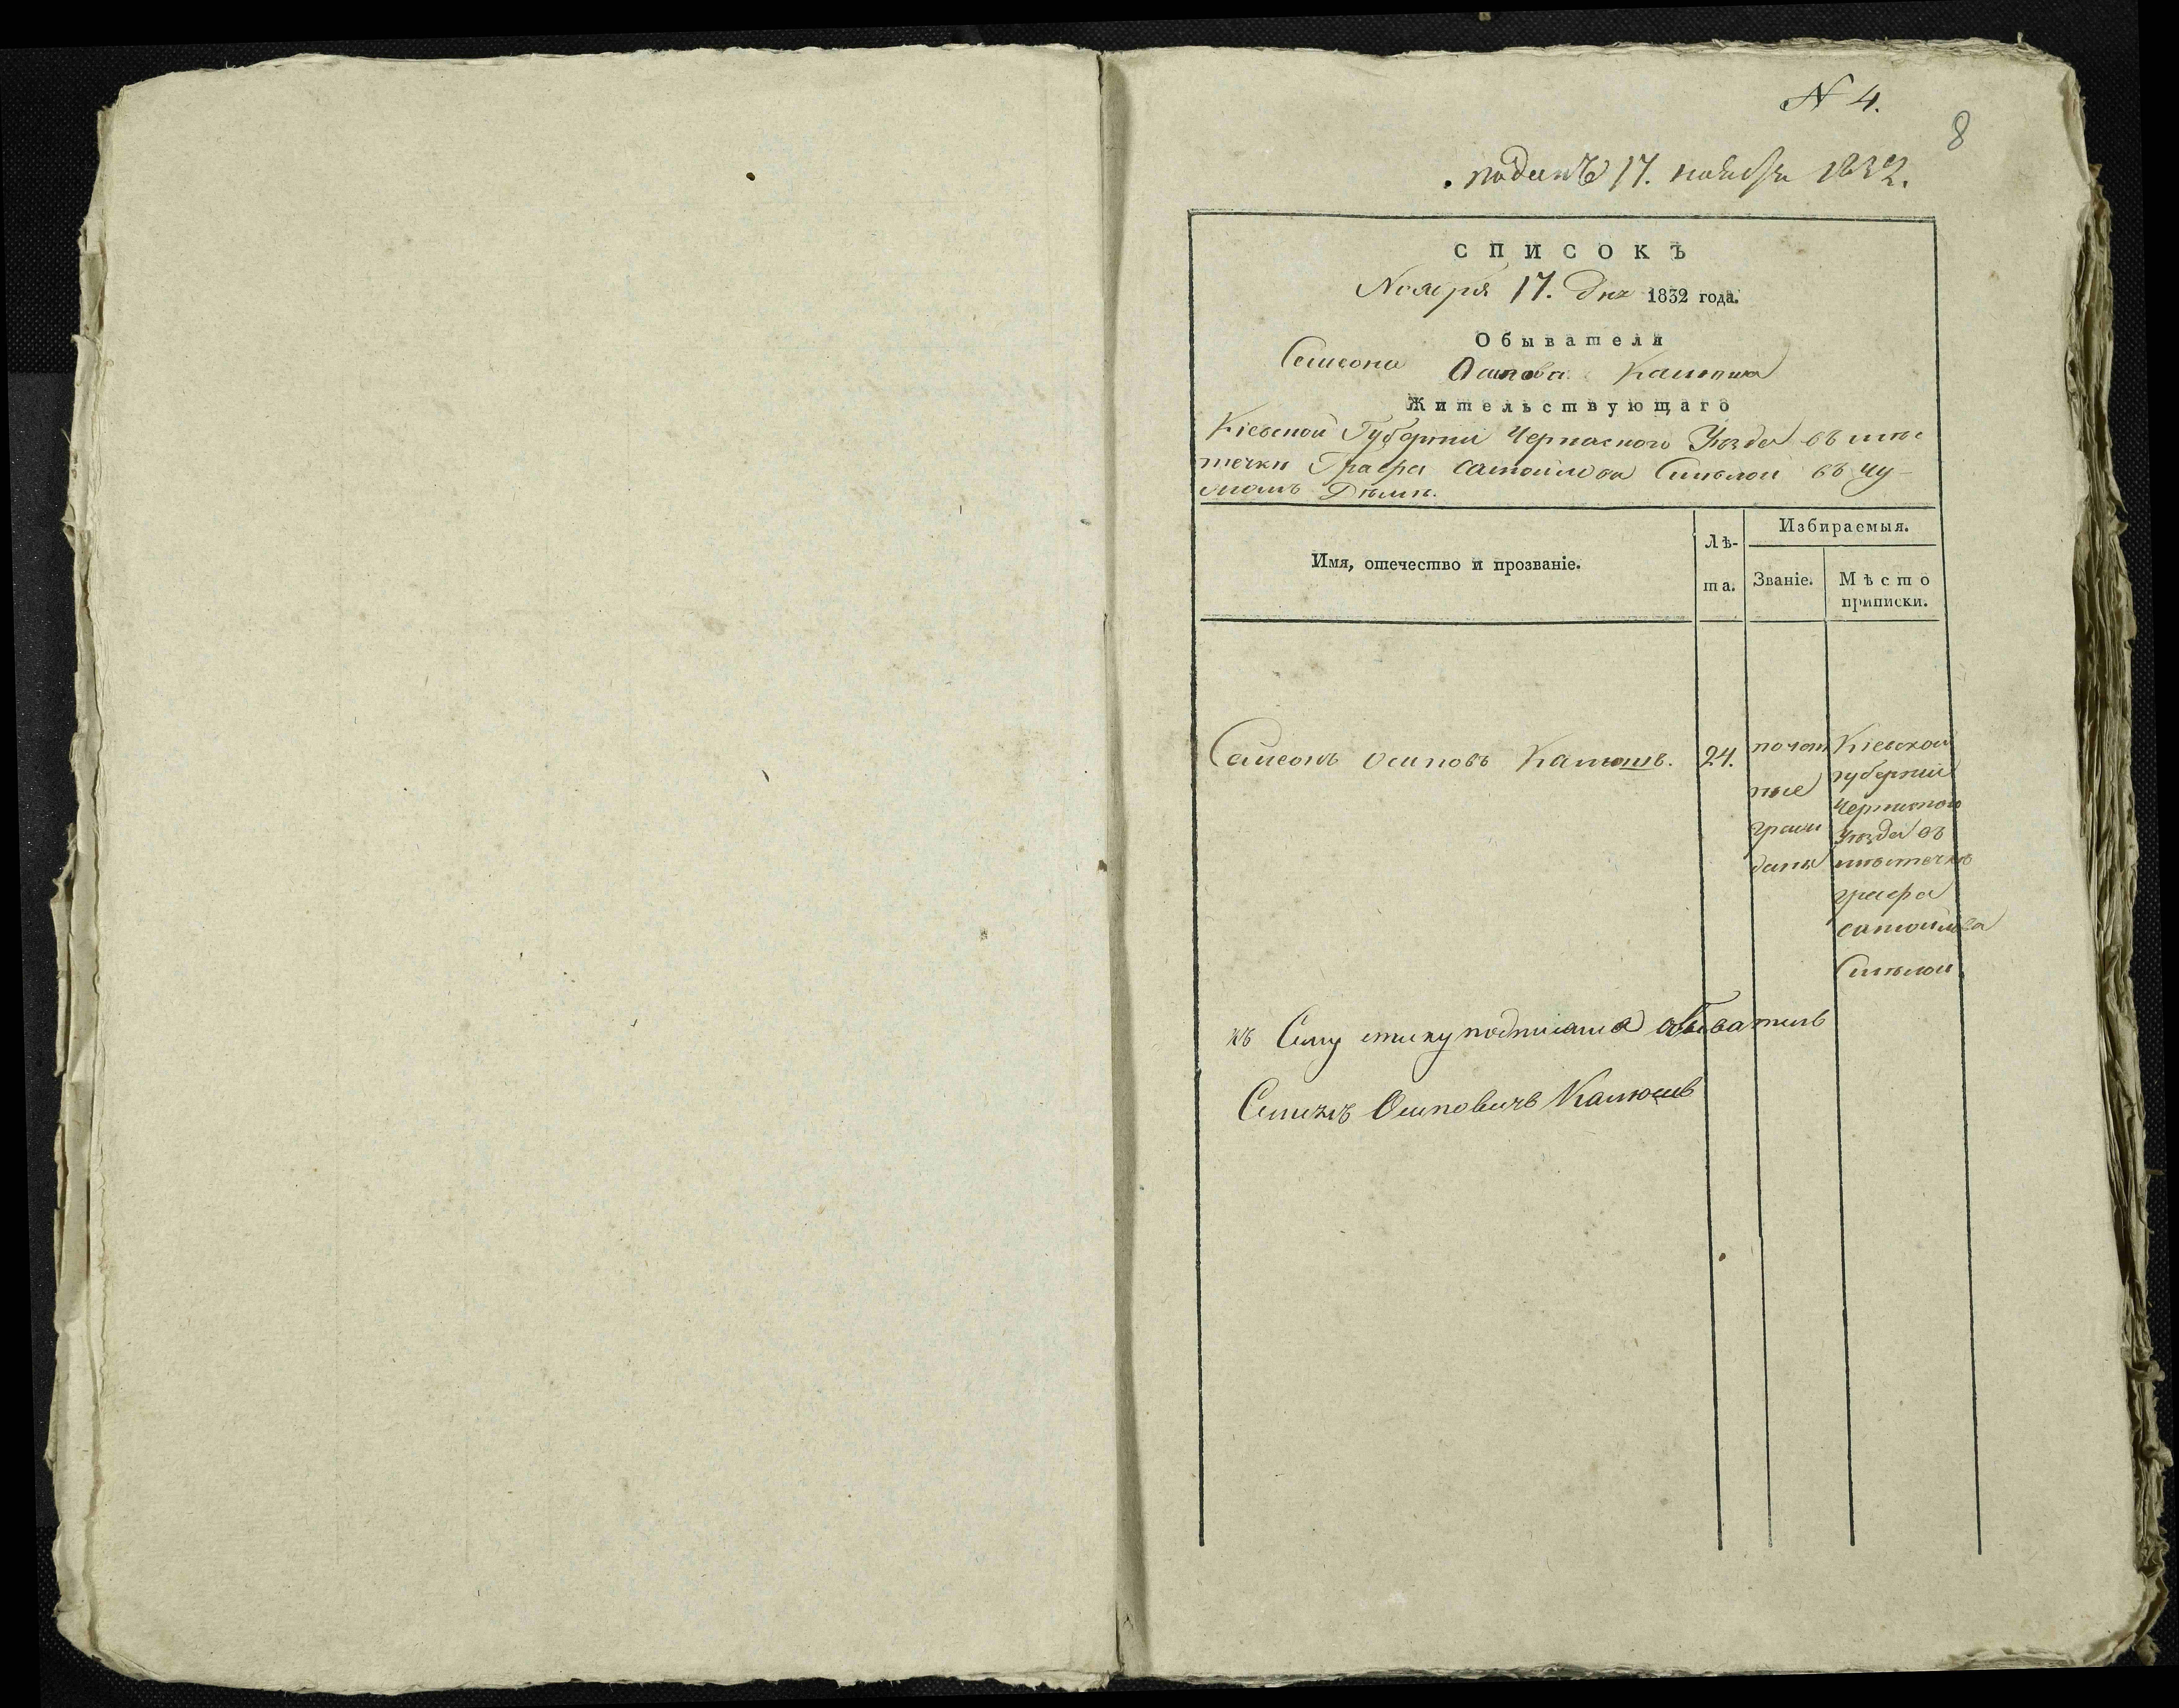 N 4.
8
поданъ 17. ноября 1832.
СПИСОКЪ
Ноября 17. дня 1832 года.
Обывателя
Симеона Осипова Катюша
Жительствующаго
Кіевской Губерніи Черкаского Уѣзда въ мѣс
течки Графа Самойлова Смѣлои въ чу-
жомъ Домѣ.
Имя, отечество и прозваніе.
Лѣ-
та.
Избираемыя.
Званіе.
Мѣсто
приписки.
Симеонъ Осиповъ Катюшъ. 24.
почот
ные
граж
данѣ
Кіевской
губерніи
Черкаского
Уѣзда въ
мѣстечкѣ
графа
самойлова
Смѣлои.
къ Сему списку подписался обыватель
Осиповичъ Катюшъ